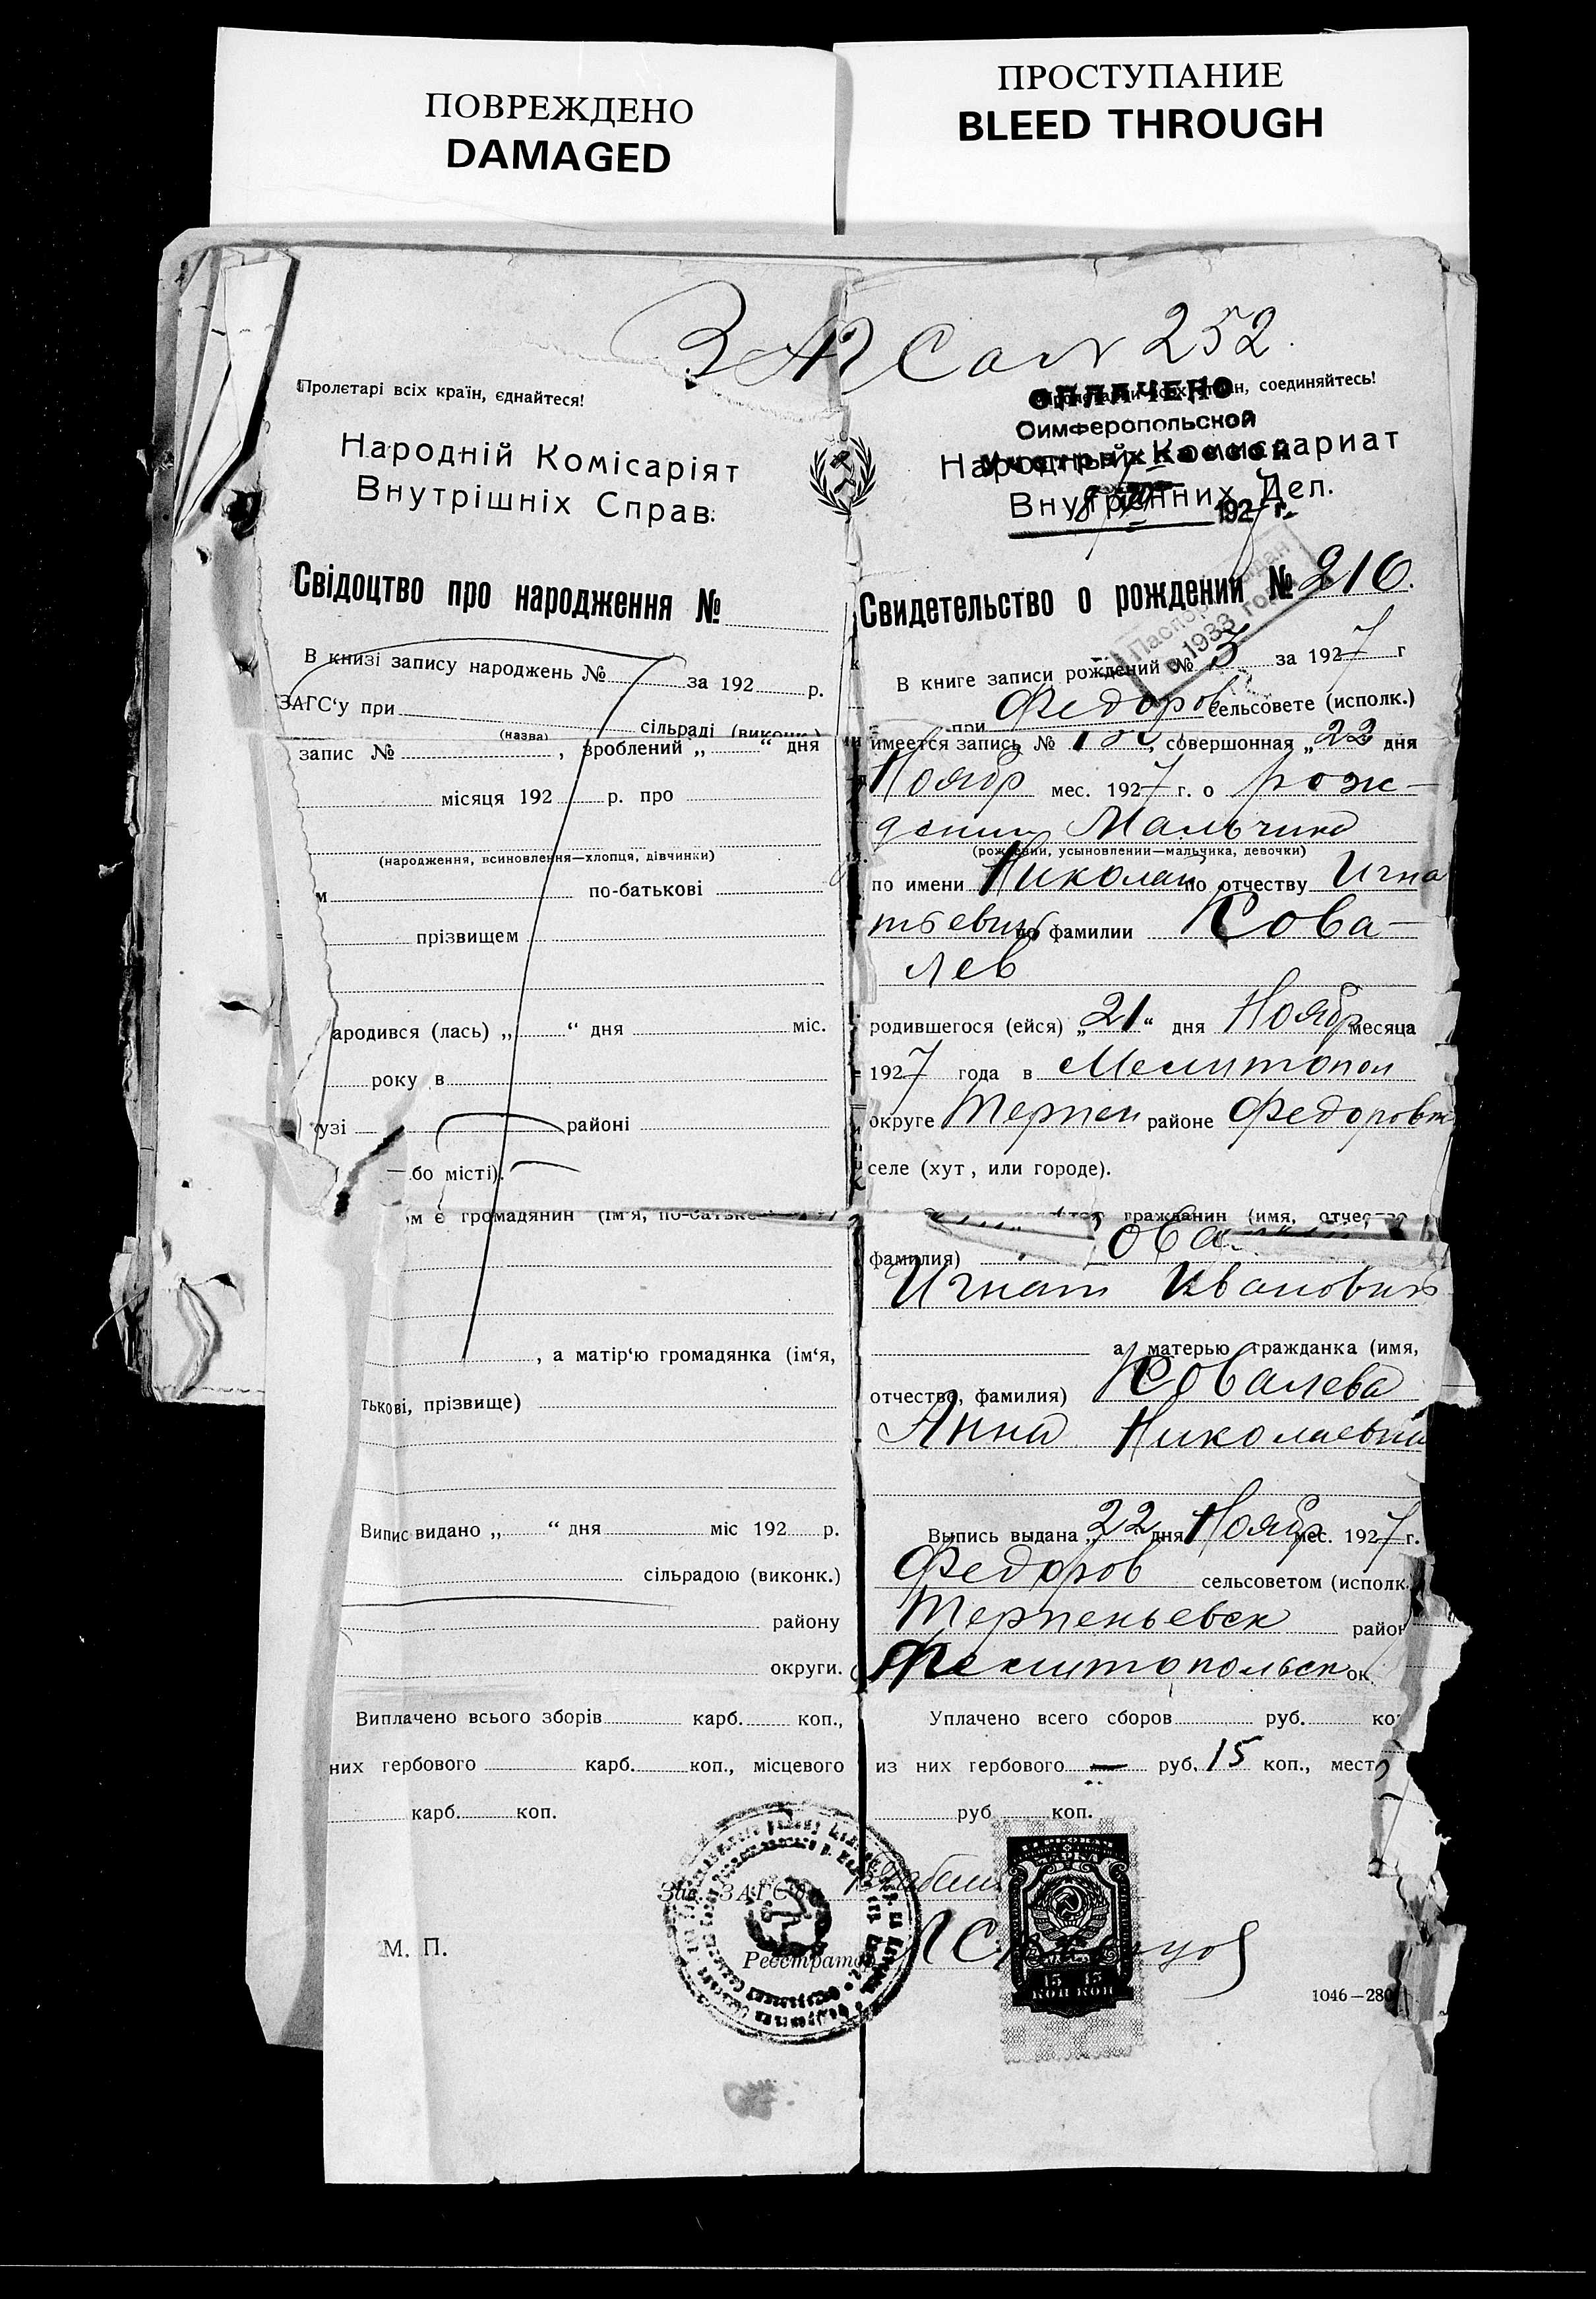 ПОВРЕЖДЕНО
DAMAGED
ПРОСТУПАНИЕ
BLEED THROUGH
252.
Пролєтарі всіх країн, єднайтеся!
Народній Комісаріят
Внутрішніх Справ.
Свідоцтво про народження №
В книзі запису народжень № за 192 р.
ЗАГС‘у при сільраді (виконк.)
(назва)
запис № , зроблений „ “ дня
місяця 192 р. про
(народження, всиновлення—хлопця, дівчинки)
м по-батькові
прізвищем
ародився (лась) „ “ дня міс.
року в
узі районі
бо місті).
ом є громадянин (ім'я, по-батьк
, а матір‘ю громадянка (ім‘я,
тькові, прізвище)
Випис видано „ “ дня міс 192 р.
сільрадою (виконк.)
району
округи.
Виплачено всього зборів карб. коп.,
них гербового карб. коп., місцевого
карб. коп.
Зав. ЗАГС‘ом
М. П.
Реєстратор
соединяйтесь!
ОПЛАЧЕНО
Симферопольской
Народный Комиссариат
Внутренних Дел.
1927 г.
Свидетельство о рождении № 216.
Паспорт выдан
в 1933 году
В книге записи рождений № 3 за 1927 г
при Федоров сельсовете (исполк.)
имеется запись № , совершонная „22 дня
Ноябр мес. 1927 г. о рож-
дении Мальчика
(рождении, усыновлении—мальчика, девочки)
по имени Николай по отчеству Игна
тьевич по фамилии Кова-
лев
родившегося (ейся) „21“ дня Ноябр месяца
1927 года в Мелитопол
округе Терпен районе Федоровк
селе (хут, или городе).
гражданин (имя, отчество
фамилия)
Игнат Иванович
а матерью гражданка (имя,
отчество, фамилия) Ковалева
Анна Николаевна
Выпись выдана „22 дня Ноябр мес. 1927 г.
Федоров сельсоветом (исполк.
Терпеньевск район
Мелитопольск ок.
Уплачено всего сборов руб. ко
из них гербового — руб. 15 коп., мест
руб коп.
МАРКА
15 15
КОП КОП
1046—280